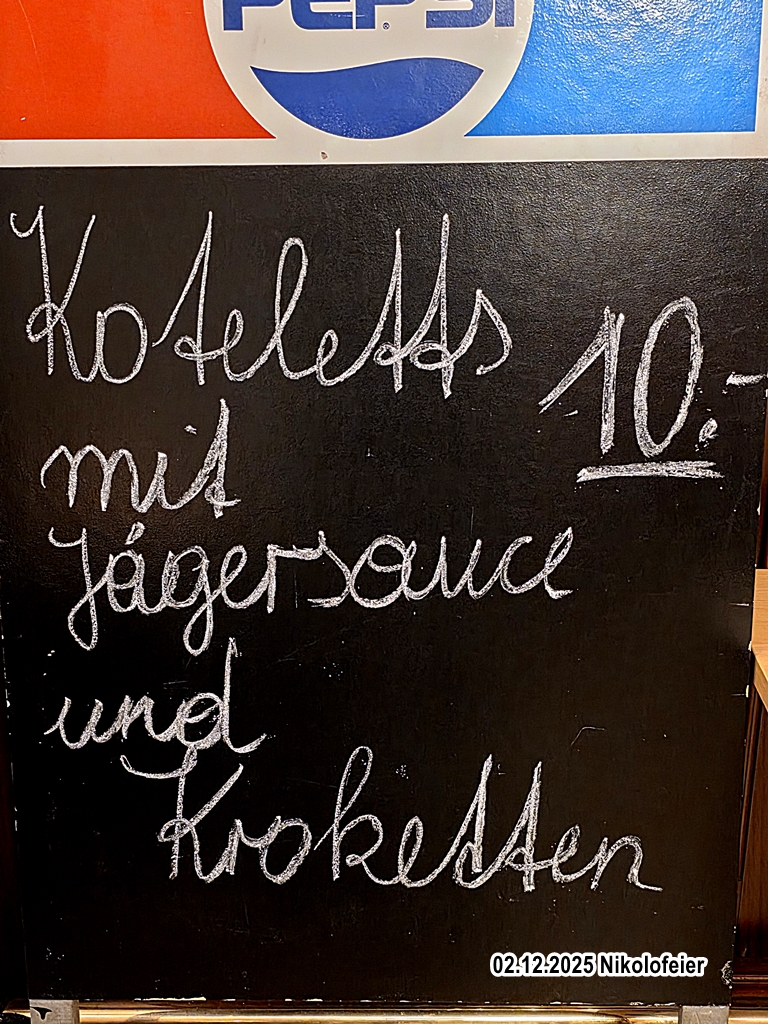 PEPSI
®
Koteletts 10.-
mit
Jágersauce
und
Kroketten
02.12.2025 Nikolofeier